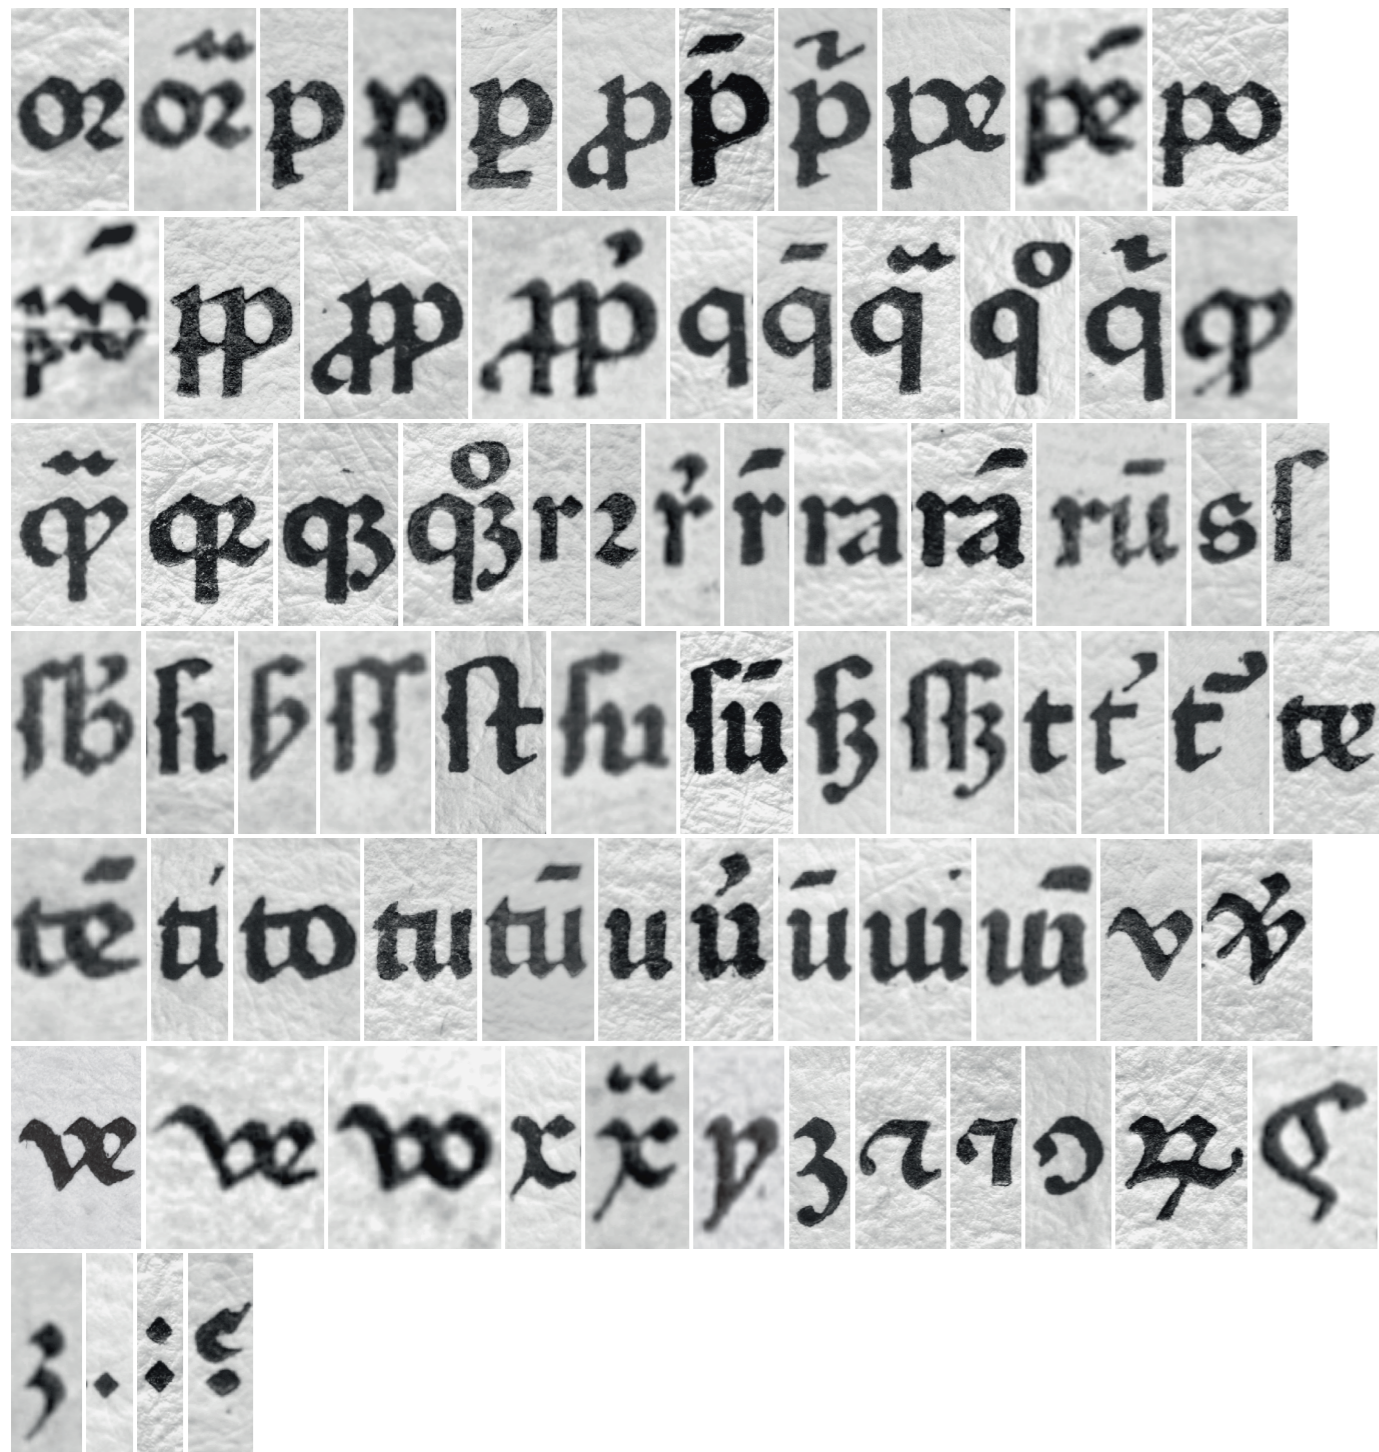 oꝛ oꝛ̈ p p ꝑ ꝓ p̄ p̃ pe pē po
pō pp ꝓp ꝓp̓ q q̄ q̈ qͦ q̃ ꝙ
ꝙ̈ qꝛ qꝫ qꝫͦ r ꝛ r̓ r̄ ra rā rū s ſ
ſb̓ ſi ẜ ſſ ſt ſu ſū ſꝫ ſſꝫ t t̓ t̄ te
tē ti to tu tū u u̓ ū ui uı̄ v v̓
ve ve vo x ẍ y ꝫ ꝛ ı ꝯ ꝝ ¶
; . : ؟